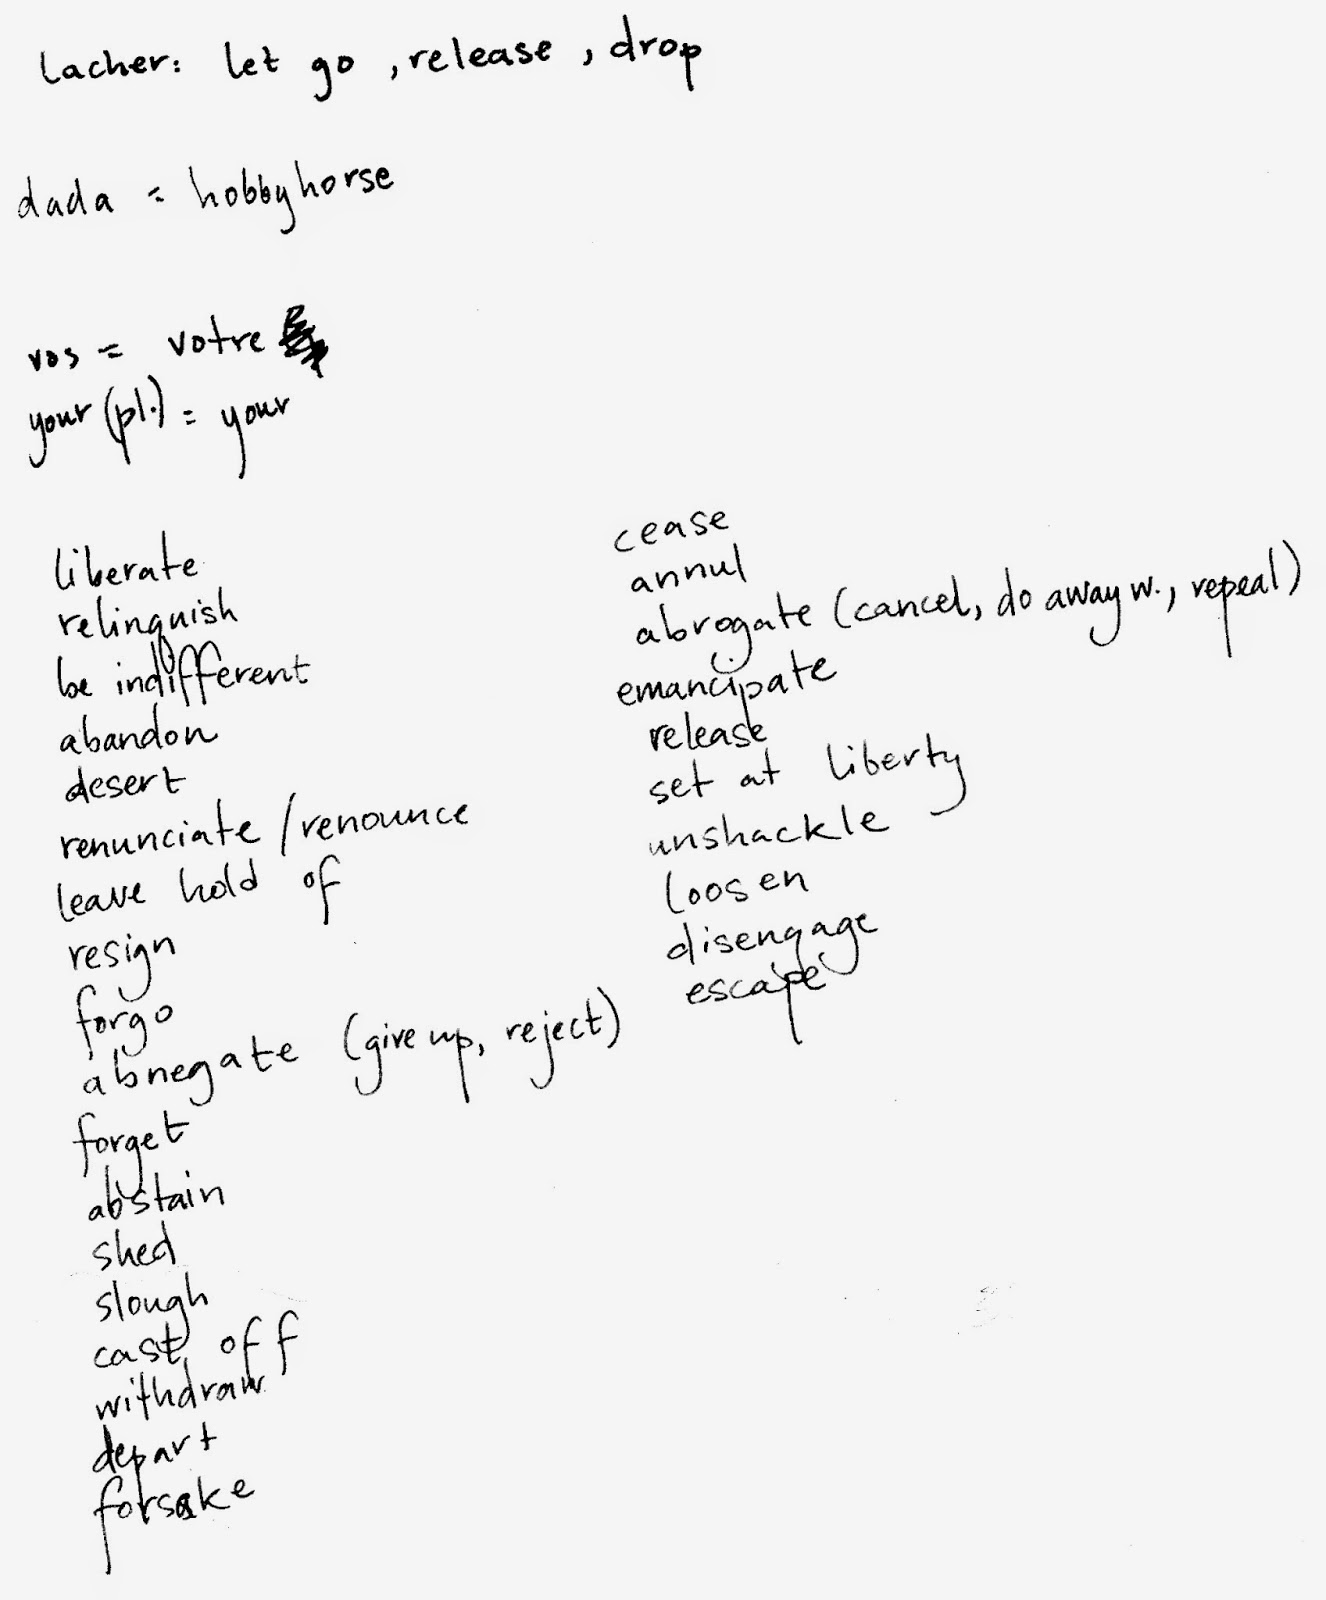 lacher: let go, release, drop
dada = hobbyhorse
vos = votre
your (pl.) = your
liberate
relinquish
be indifferent
abandon
desert
renunciate / renounce
leave hold of
resign
forgo
abnegate (give up, reject)
forget
abstain
shed
slough
cast off
withdraw
depart
forsake
cease
annul
abrogate (cancel, do away w., repeal)
emancipate
release
set at liberty
unshackle
loosen
disengage
escape